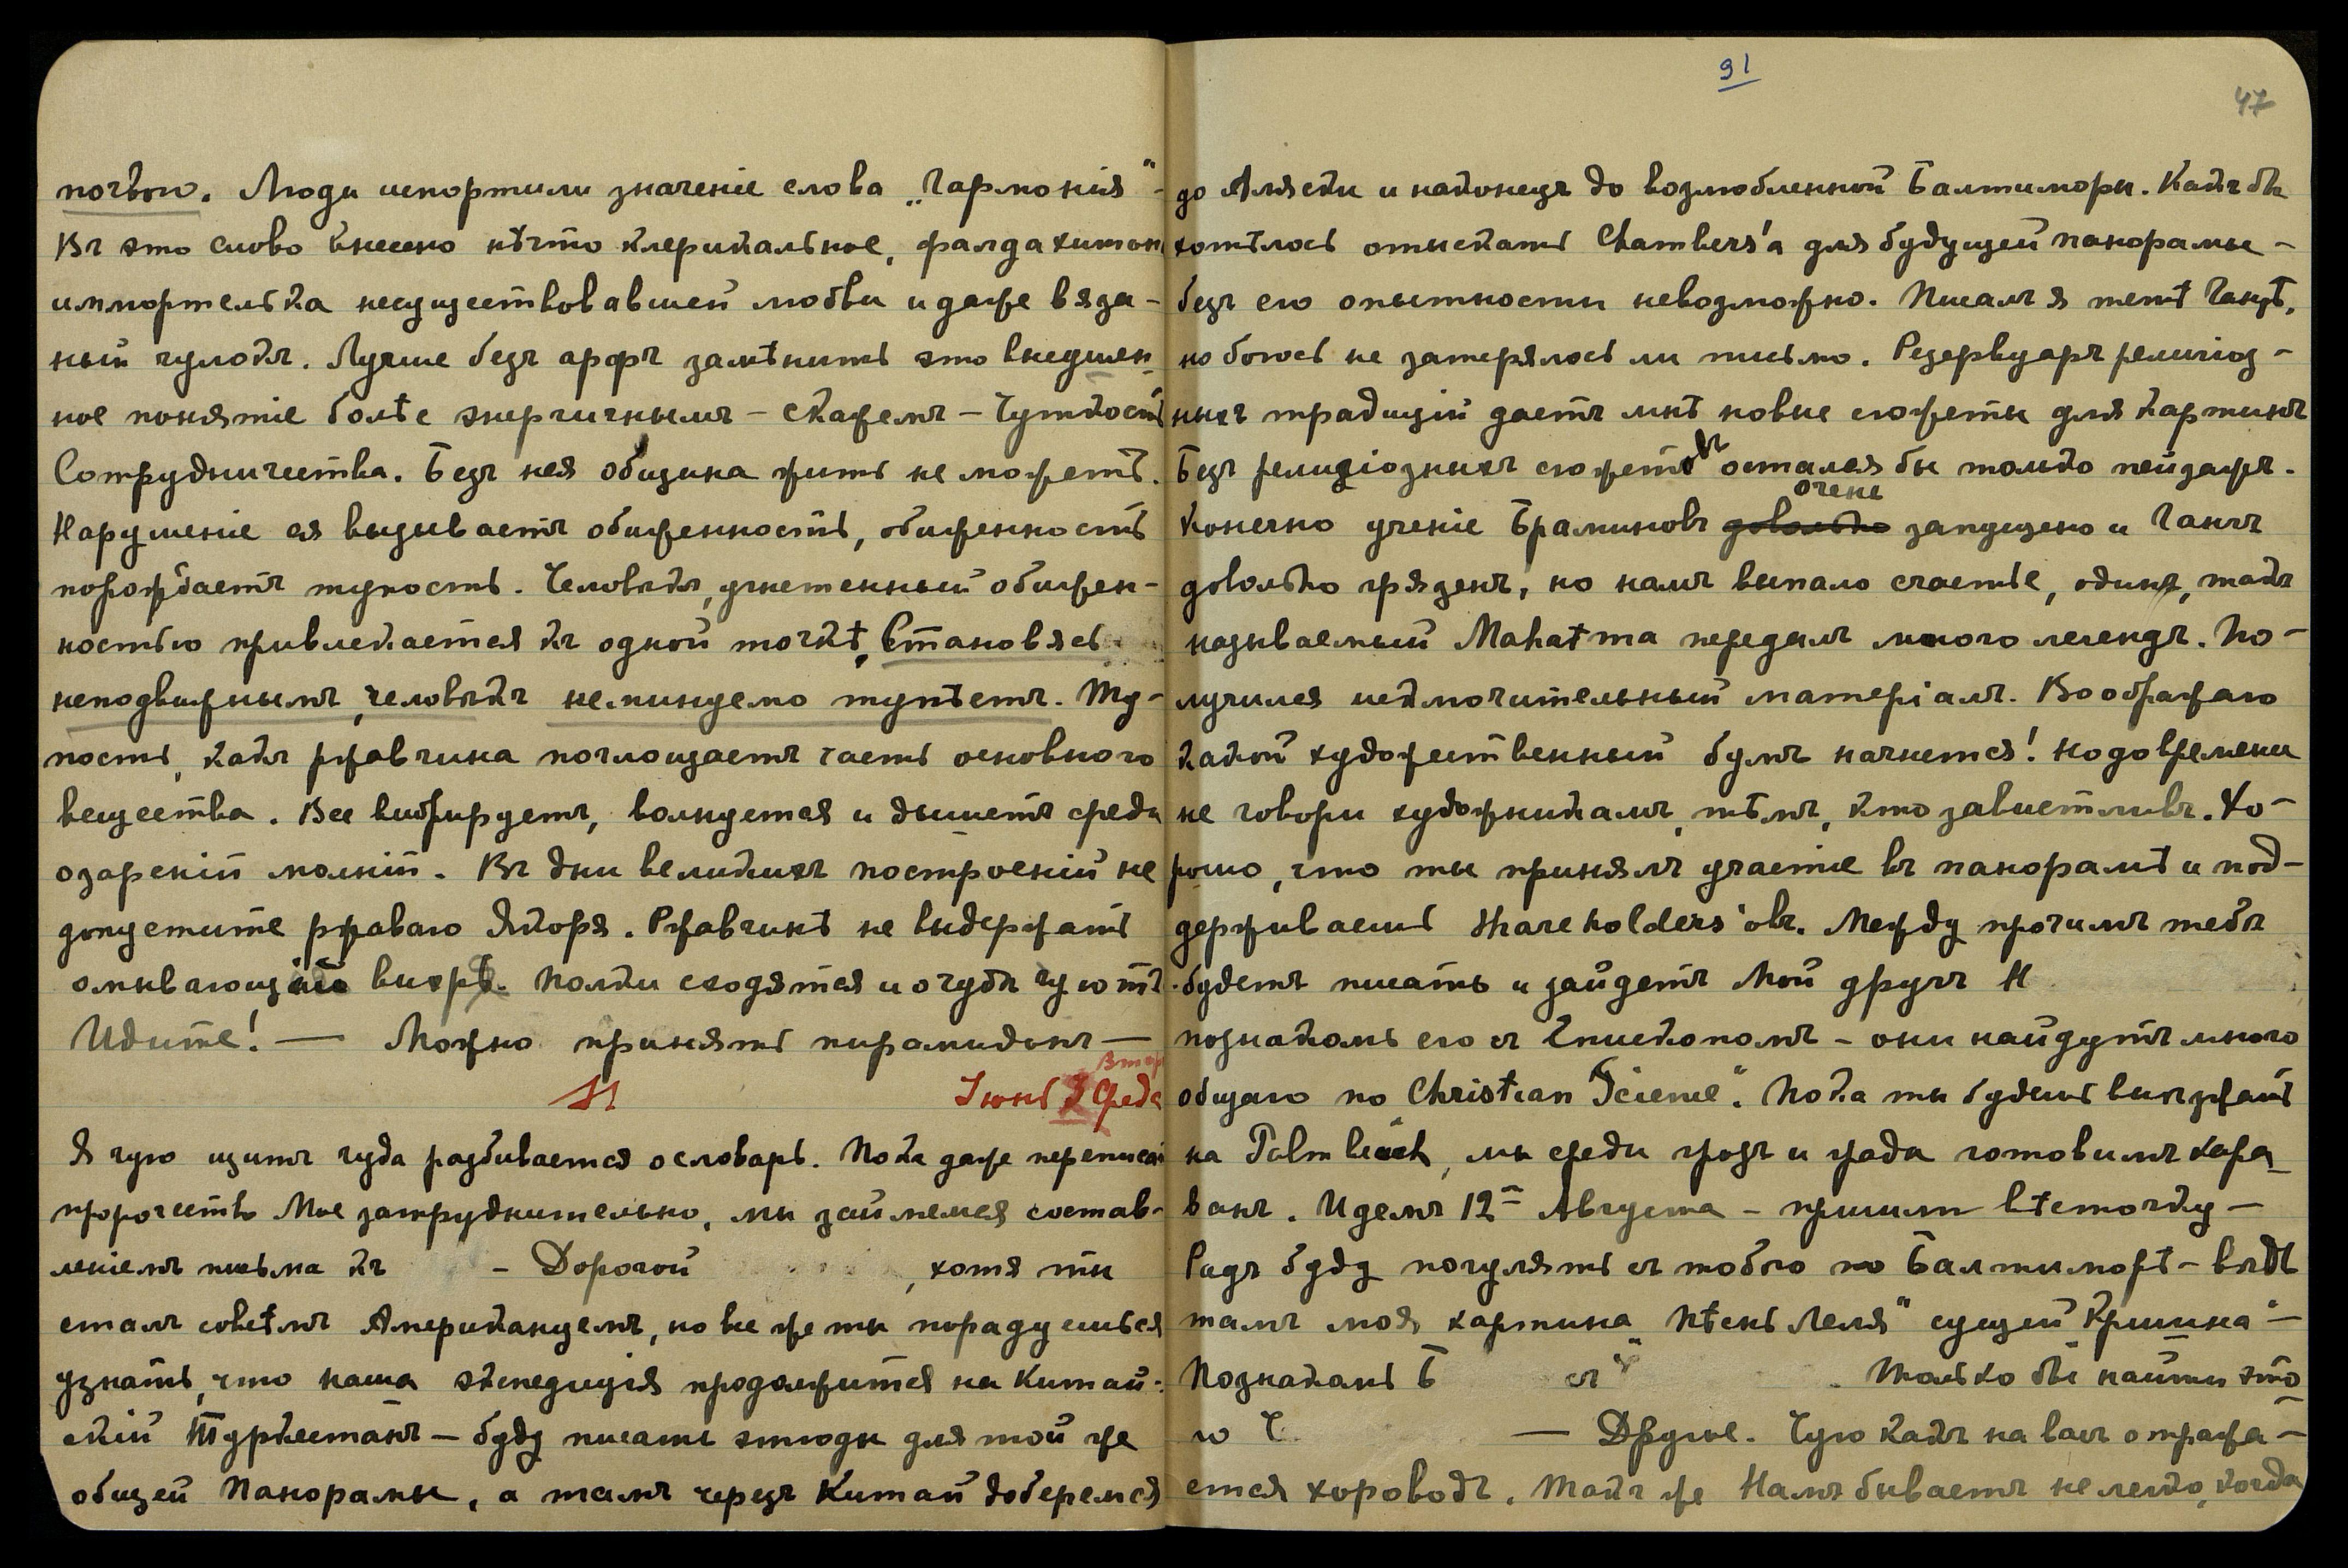 почвою. Люди испортили значеніе слова „Гармонія" -
Въ это слово внесено нѣчто клерикальное, фалда хитон
иммортелька несуществовавшей любви и даже вяза-
ный чулокъ. Лучше безъ арфъ замѣнить это внедшен
ное понятіе болѣе энергичнымъ - скажемъ - Чуткость
Сотрудничества. Безъ нея община жить не можетъ.
Нарушеніе ея вызываетъ обиженность, обиженность
порождаетъ тупость. Человѣкъ, угнетенный обижен-
ностью привлекается къ одной точкѣ, Становясь
неподвижнымъ, человѣкъ неминуемо тупѣетъ. Ту-
пость, какъ ржавчина поглощаетъ часть основного
вещества. Все вибрируетъ, волнуется и дышетъ среди
озареній молній. Въ дни великихъ построеній не
допустите ржаваго якоря. Ржавчинѣ не выдержать
омывающій вихрь. Полки сходятся и о чудѣ чуютъ.
Идите! — Можно принять пирамидонъ —
11 Іюнь 2 Среда
Втор
Я чую щитъ чуда разбивается о словарь. Пока даже переписка
пророчествъ Мое затруднительно, мы займемся состав-
леніемъ письма къ - Дорогой , хотя ты
сталъ совсѣмъ Американцемъ, но все же ты порадуешься
узнать, что наша экспедиція продолжится на Китай-
скій Туркестанъ — буду писать этюды для той же
общей Панорамы, а тамъ черезъ Китай доберемся
91
47
до Аляски и наконецъ до возлюбленной Балтиморы. Какъ бы
хотѣлось отыскать Chambers'а для будущей панорамы -
безъ его опытности невозможно. Писалъ я тетѣ Гангѣ,
но боюсь не затерялось ли письмо. Резервуаръ религіоз-
ныхъ традицій даетъ мнѣ новые сюжеты для картинъ
Безъ религіозныхъ сюжетовъ остался бы только пейзажъ.
очень
Конечно ученіе Браминовъ довольно запущено и Гангъ
довольно грязенъ, но намъ выпало счастіе, одинъ, такъ
называемый Mahatma передалъ много легендъ. По-
лучился исключительный матеріалъ. Воображаю
какой художественный бумъ начнется! Но до времени
не говори художникамъ, тѣмъ, кто завистливъ. Хо-
рошо, что ты принялъ участіе въ панорамѣ и под-
держиваешь Shareholders'овъ. Между прочимъ тебѣ
будетъ писать и зайдетъ Мой другъ Н
познакомь его съ Епископомъ - они найдутъ много
общаго по Christian Science". Пока ты будешь выѣзжать
на Palm beach, мы среди грозъ и града готовимъ кара-
ванъ. Идемъ 12го Августа - пришли вѣсточку -
Радъ буду погулять съ тобою по Балтиморѣ - вѣдь
тамъ моя картина „Пѣснь Леля" сущій Кришна" —
Познакомь Б съ Только бы найти это
го Ч — Другое. Чую какъ на васъ отража-
ется хороводъ. Такъ же Намъ бываетъ не легко, когда